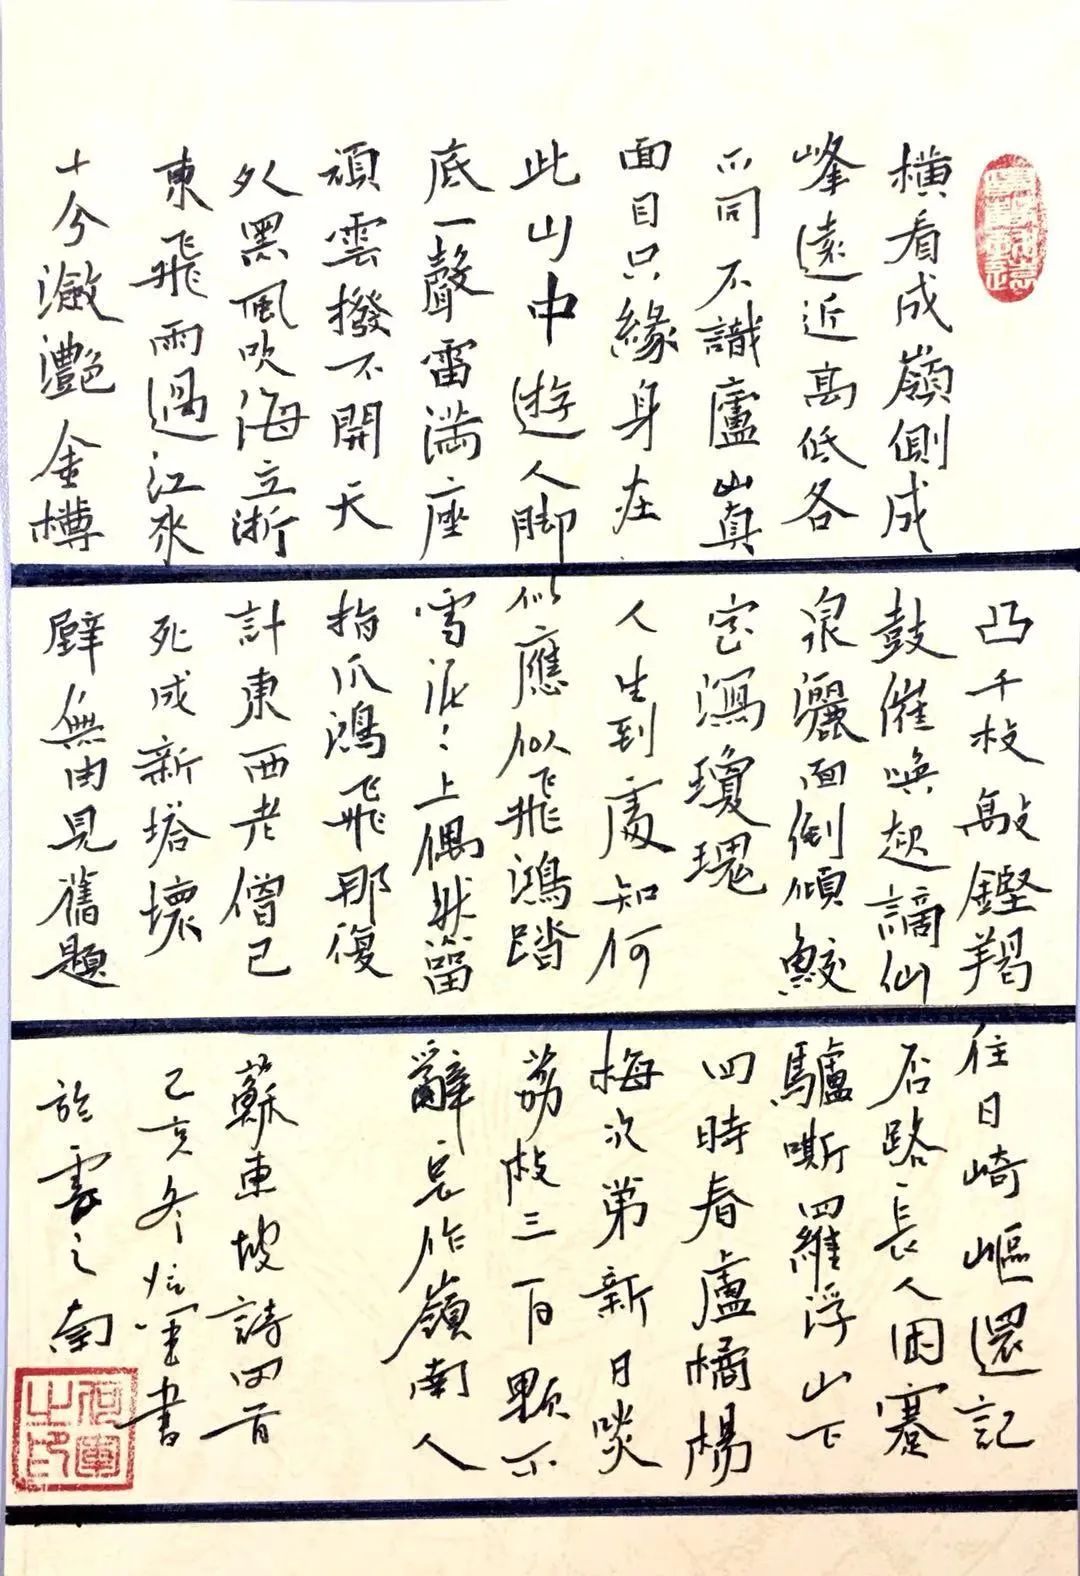 橫看成嶺側成
峰遠近高低各
不同不識廬山真
面目只緣身在
此山中遊人脚
底一聲雷滿座
頑雲撥不開天
外黑風吹海立浙
東飛雨過江來
十分瀲灩金樽
凸千枝敲鏗羯
鼓催喚起謫仙
泉灑面倒傾鮫
室瀉瓊瑰
人生到處知何
似應似飛鴻踏
雪泥〻上偶然留
指爪鴻飛那復
計東西老僧已
死成新塔壞
壁無由見舊題
往日崎嶇還記
否路長人困蹇
驢嘶羅浮山下
四時春盧橘楊
梅次第新日啖
荔枝三百顆不
辭長作嶺南人
蘇東坡詩四首
乙亥冬 軍書
於雲之南
何軍之印